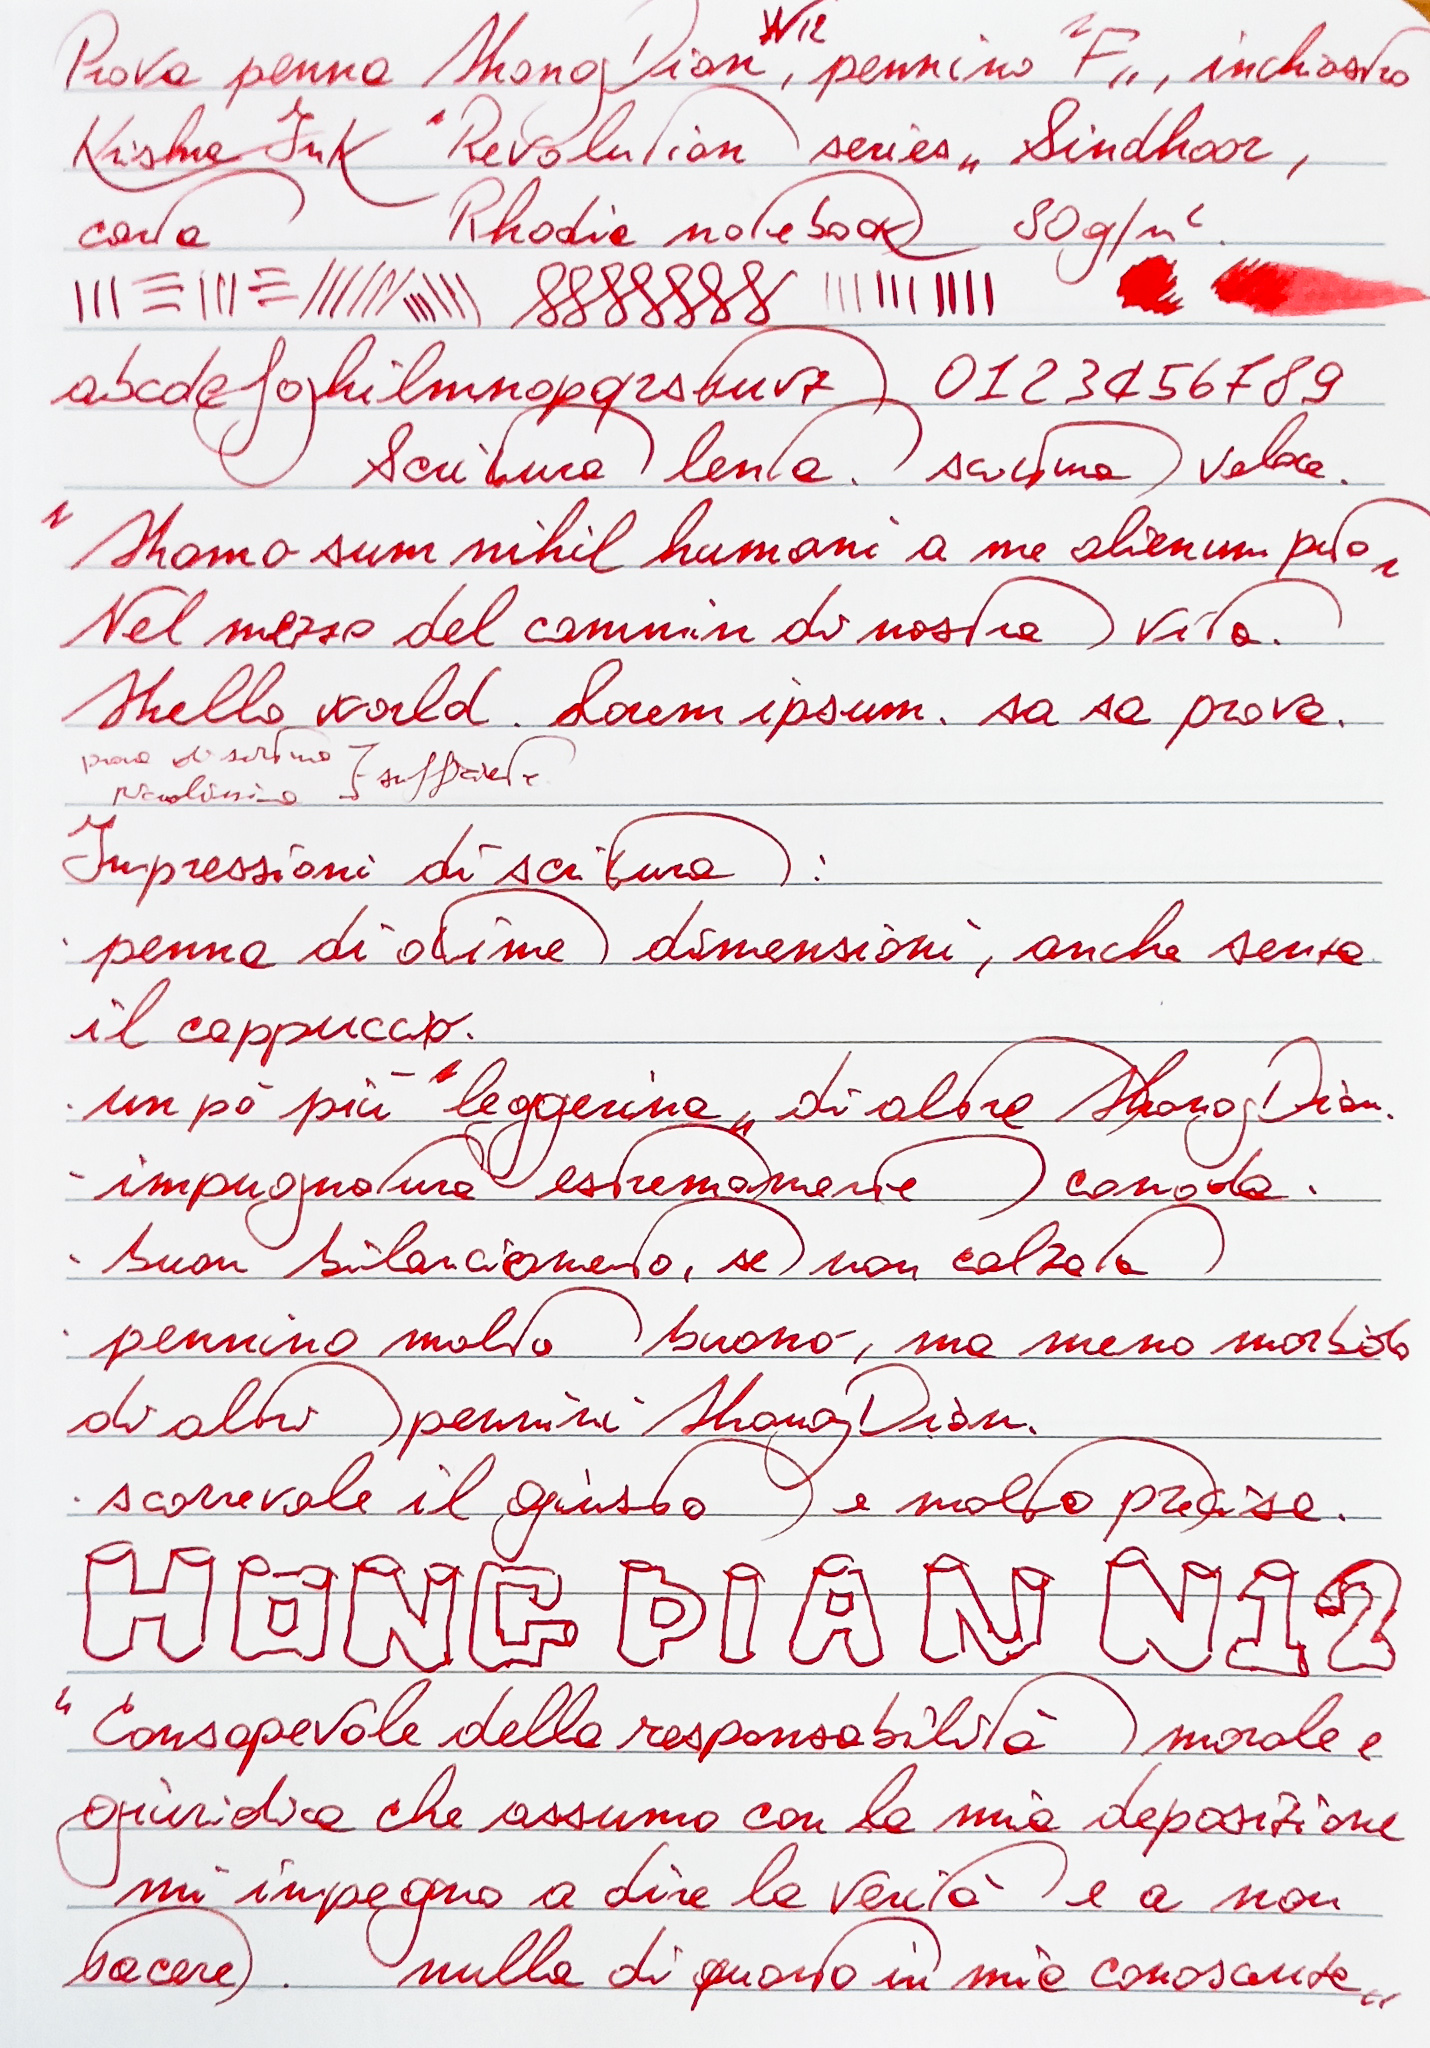 Prova penna HongDian N12, pennino "F", inchiostro
Krishna Ink "Revolution series" Sindhoor,
carta Rhodia notebook 80g/m².
abcdefghilmnopqrstuvz 0123456789
Scrittura lenta. scrittura veloce.
"Homo sum nihil humani a me alienum puto"
Nel mezzo del cammin di nostra vita.
Hello world. Lorem ipsum. sa sa prova.
prova di scrittura
piccolissima } sufficiente
Impressioni di scrittura:
· penna di ottime dimensioni, anche senza
il cappuccio.
· un pò più "leggerina" di altre HongDian.
- impugnatura estremamente comoda.
· buon bilanciamento, se non calzata
· pennino molto buono, ma meno morbido
di altri pennini HongDian.
· scorrevole il giusto e molto precisa.
HONGDIAN N12
"Consapevole della responsabilità morale e
giuridica che assumo con la mia deposizione
mi impegno a dire la verità e a non
tacere nulla di quanto in mia conoscenza"